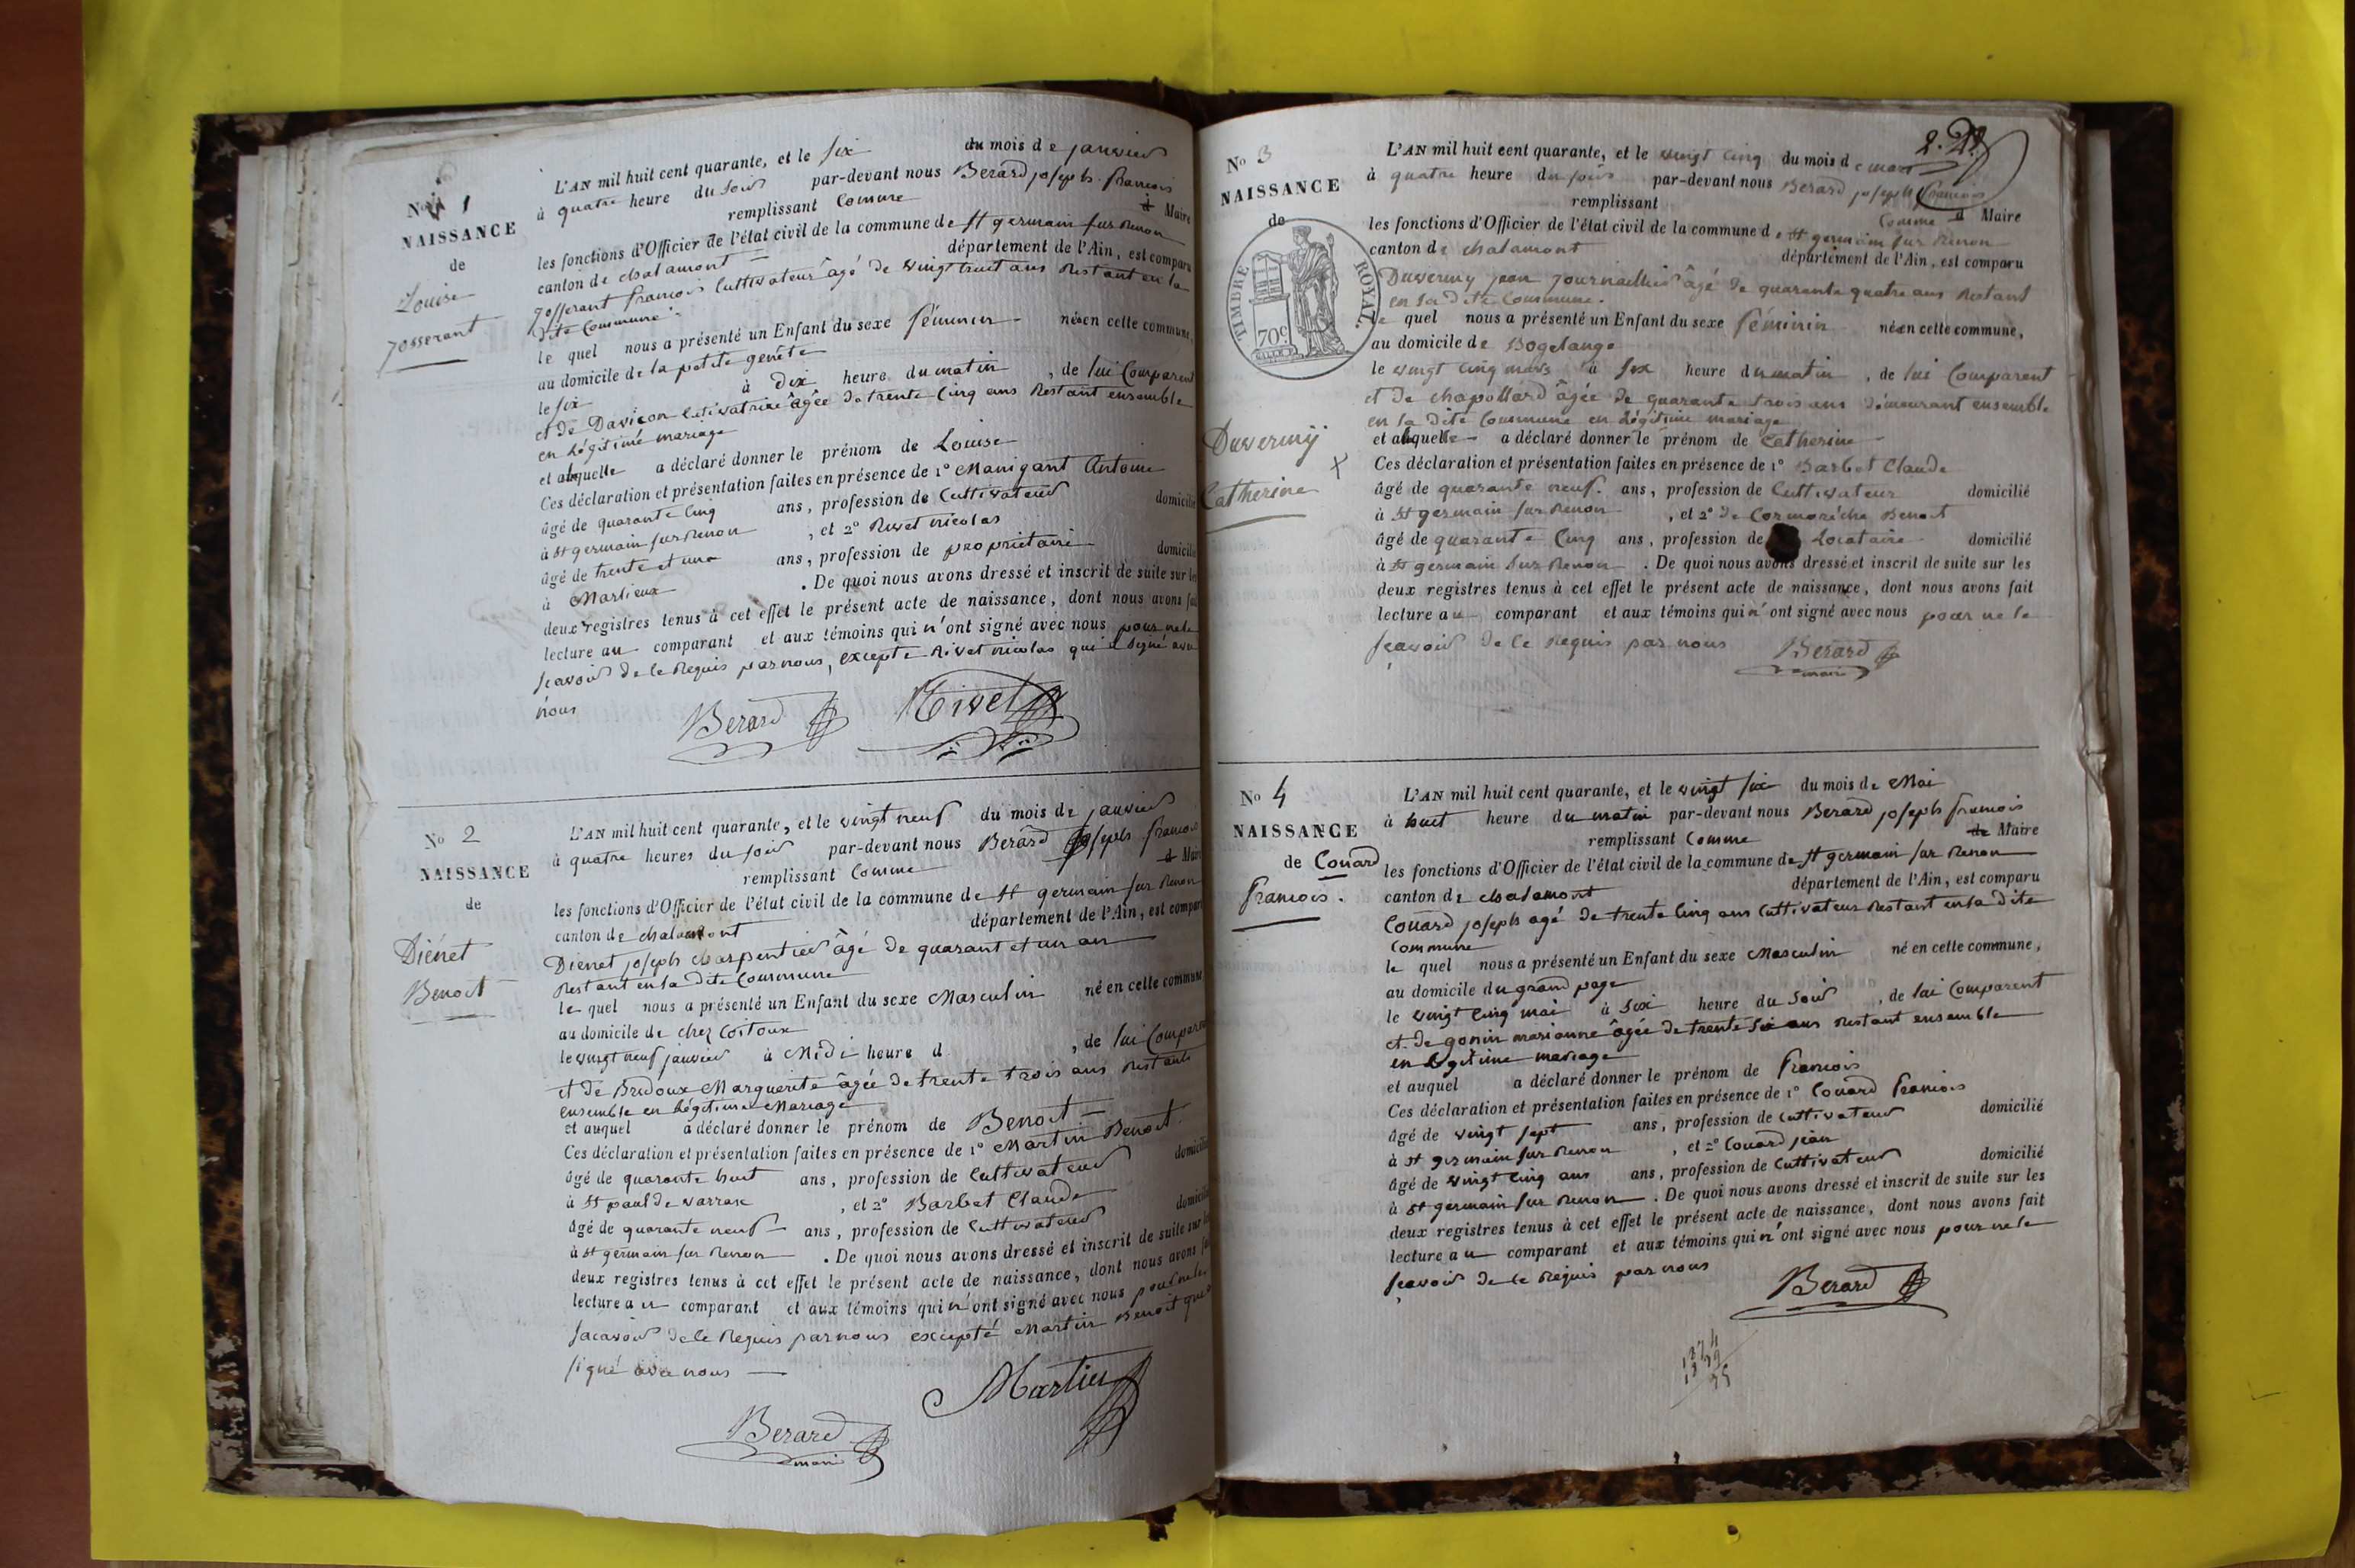 No 1
NAISSANCE
de
Louise
Josserant
L'AN mil huit cent quarante, et le six du mois de janvier
à quatre heure du soir par-devant nous Berard joseph francois
remplissant Comme d Maire
les fonctions d'Officier de l'état civil de la commune de st germain sur Renon
canton de chalamont département de l'Ain, est comparu
josserant francois Cultivateur âgé de vingt huit ans Restant en la
dite Commune
le quel nous a présenté un Enfant du sexe féminin né en cette commune,
au domicile de la petite genète
le six à dix heure du matin, de lui Comparent
et de Davicon Cutivatrice âgée de trente Cinq ans Restant ensemble
en Légitime mariage
et a laquelle a déclaré donner le prénom de Louise
Ces déclaration et présentation faites en présence de 1° Manigant Antoine
âgé de quarante Cinq ans, profession de Cultivateur domicilié
à st germain sur Renon, et 2° Rivet nicolas
âgé de trente et un ans, profession de propriétaire domicilié
à Marlieux. De quoi nous avons dressé et inscrit de suite sur les
deux registres tenus à cet effet le présent acte de naissance, dont nous avons fait
lecture au comparant et aux témoins qui n'ont signé avec nous pour ne le
scavoir de le Requis par nous, excepte Rivet nicolas qui a signé avec
nous
Berard Rivet
No 2
NAISSANCE
de
Diénet
Benoit
L'AN mil huit cent quarante, et le vingt neuf du mois de janvier
à quatre heures du soir par-devant nous Berard joseph francois
remplissant Comme d Maire
les fonctions d'Officier de l'état civil de la commune de st germain sur Renon
canton de chalamont département de l'Ain, est comparu
Dienet joseph charpentier âgé de quarant et un an
Restant en la dite Commune
le quel nous a présenté un Enfant du sexe Masculin né en cette commune
au domicile de chez Coitoux
le vingt neuf janvier à Midi heure d, de lui Comparent
et de Bredoux Marguerite âgée de trente trois ans Restant
ensemble en Légitime Mariage
et auquel a déclaré donner le prénom de Benoit
Ces déclaration et présentation faites en présence de 1° Martin Benoit
âgé de quarante huit ans, profession de Cultivateur domicilié
à st paul de varrax, et 2° Barbet Claude
âgé de quarante neuf ans, profession de Cultivateur domicilié
à st germain sur Renon. De quoi nous avons dressé et inscrit de suite sur les
deux registres tenus à cet effet le présent acte de naissance, dont nous avons fait
lecture au comparant et aux témoins qui n'ont signé avec nous pour ne le
scavoir de le Requis par nous excepté Martin Benoit qui a
signé avec nous
Martin
Berard
maire
No 3
NAISSANCE
de
TIMBRE ROYAL.
70c
Duverny
X
Catherine
L'AN mil huit cent quarante, et le vingt cinq du mois de mars
à quatre heure du soir par-devant nous Berard joseph francois
remplissant Comme d Maire
les fonctions d'Officier de l'état civil de la commune de st germain sur Renon
canton de chalamont département de l'Ain, est comparu
Duverny jean journaillier âgé de quarente quatre ans Restant
en la dite Commune.
le quel nous a présenté un Enfant du sexe féminin né en cette commune,
au domicile de Bogelange
le vingt cinq mars à six heure du matin, de lui Comparent
et de chapollard âgée de quarante trois ans démeurant ensemble
en la dite Commune en Légitime mariage
et a laquelle a déclaré donner le prénom de Catherine
Ces déclaration et présentation faites en présence de 1° Barbet Claude
âgé de quarante neuf. ans, profession de Cultivateur domicilié
à st germain sur Renon, et 2° de Cormoréche Benoit
âgé de quarante Cinq ans, profession de Locataire domicilié
à st germain sur Renon. De quoi nous avons dressé et inscrit de suite sur les
deux registres tenus à cet effet le présent acte de naissance, dont nous avons fait
lecture au comparant et aux témoins qui n'ont signé avec nous pour ne le
scavoir de le Requis par nous Berard
maire
No 4
NAISSANCE
de Couard
francois.
L'AN mil huit cent quarante, et le vingt six du mois de Mai
à huit heure du matin par-devant nous Berard joseph francois
remplissant Comme de Maire
les fonctions d'Officier de l'état civil de la commune de st germain sur Renon
canton de chalamont département de l'Ain, est comparu
Couard joseph agé de trente Cinq ans Cultivateur Restant en la dite
Commune
le quel nous a présenté un Enfant du sexe Masculin né en cette commune,
au domicile du grand page
le vingt Cinq mai à six heure du soir, de lui Comparent
et de gonin marianne âgée de trente six ans Restant ensemble
en Légitime mariage
et auquel a déclaré donner le prénom de francois
Ces déclaration et présentation faites en présence de 1° Couard francois
âgé de vingt sept ans, profession de Cultivateur domicilié
à st germain sur Renon, et 2° Couard jean
âgé de vingt Cinq ans ans, profession de Cultivateur domicilié
à st germain sur Renon. De quoi nous avons dressé et inscrit de suite sur les
deux registres tenus à cet effet le présent acte de naissance, dont nous avons fait
lecture au comparant et aux témoins qui n'ont signé avec nous pour ne le
scavoir de le Requis par nous
Berard